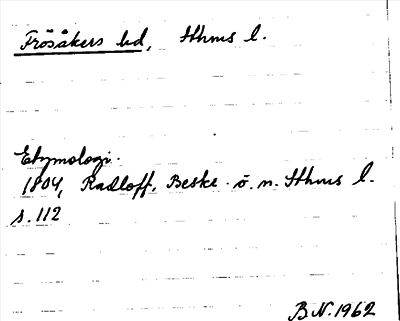 Frösåkers hd, Sthms l.
Etymologi.
1804, Radloff, Beskr. ö. n. Sthms l.
s. 112
B.N. 1962